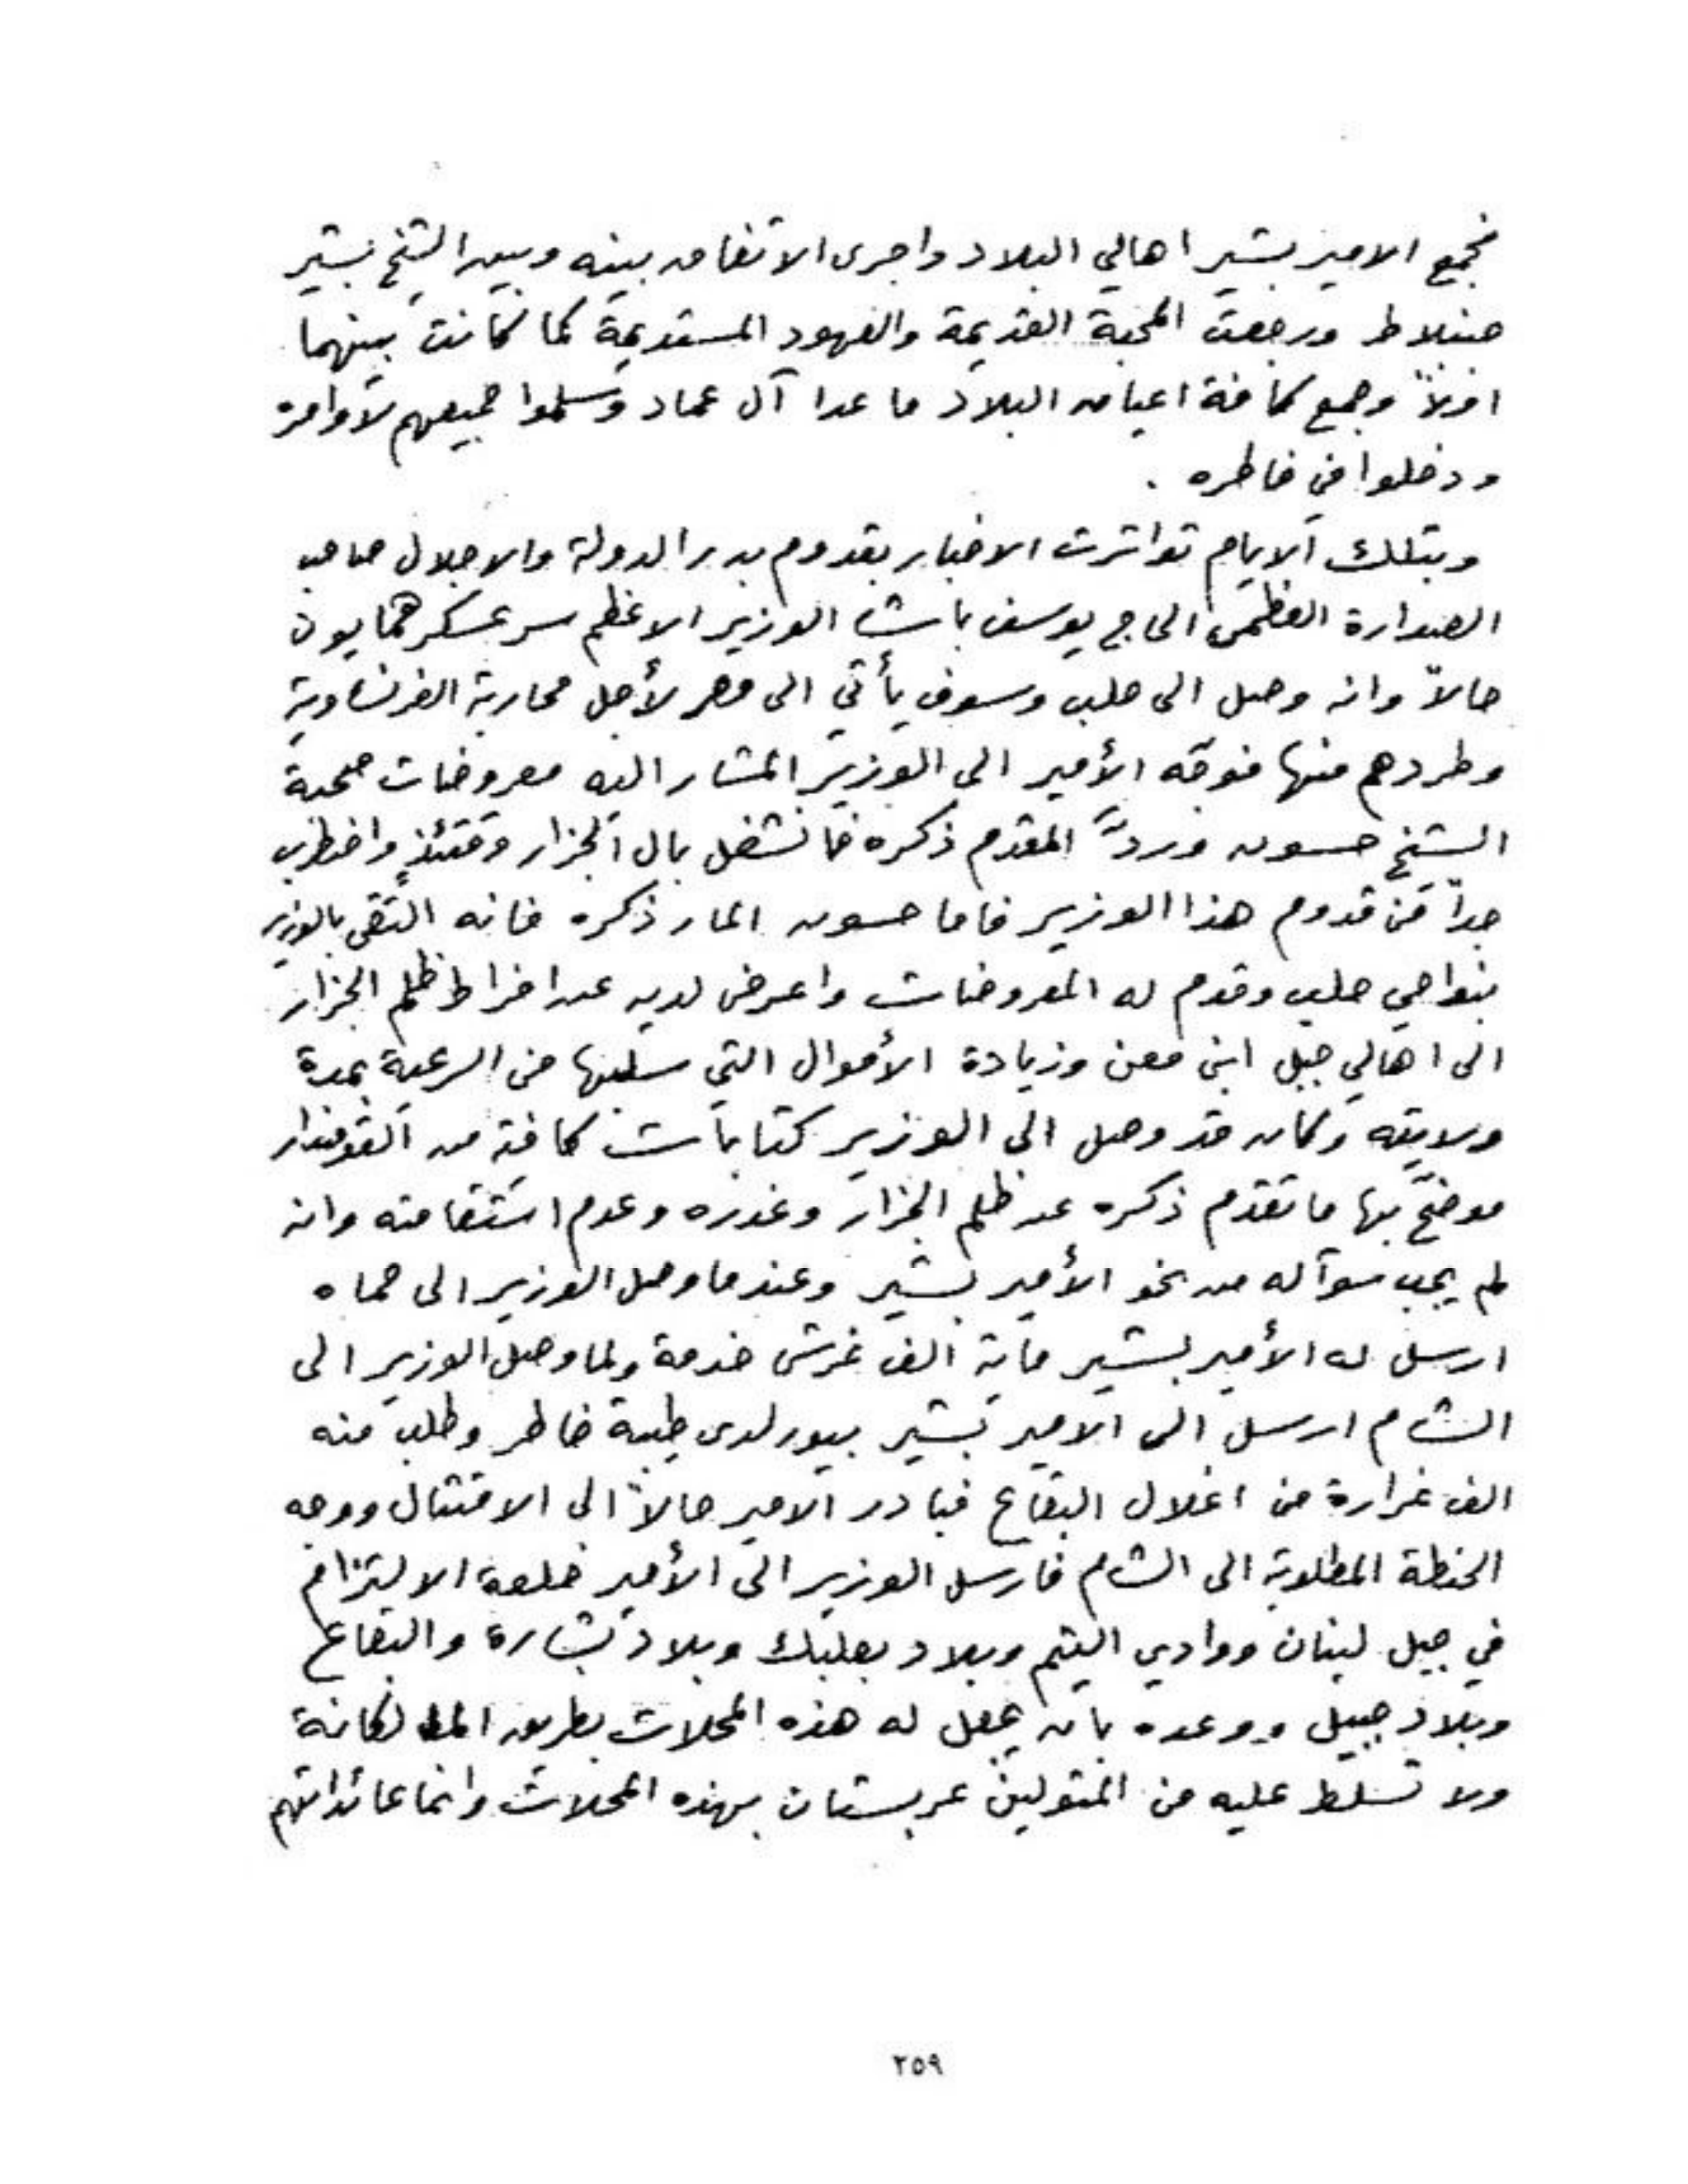 فجمع الامير بشير اهالي البلاد واجرى الاتفاق بينه وبين الشيخ بشير
جنبلاط ورجعت المحبة القديمة والعهود المستديمة كما كانت بينهما
اولاً وجمع كافة اعيان البلاد ما عدا آل عماد وسلموا جميعهم لأوامره
ودخلوا في خاطره .
وبتلك الايام تواترت الاخبار بقدوم بدر الدولة والاجلال صاحب
الصدارة العظمى الحاج يوسف باشا الوزير الاعظم سر عسكر همايون
حالاً وانه وصل الى حلب وسوف يأتي الى مصر لأجل محاربة الفرنساوية
وطردهم منها فوجّه الأمير الى الوزير المشار اليه معروضات صحبة
الشيخ حسون وردّ المقدم ذكره فانشغل بال الجزار وقتئذٍ واضطرب
جداً من قدوم هذا الوزير فاما حسون المار ذكره فانه التقى بالوزير
بنواحي حلب وقدم له المعروضات واعرض لديه عن افراط ظلم الجزار
الى اهالي جبل ابن معن وزيادة الأموال التي سلبها من الرعية بمدة
ولايته وكان قد وصل الى الوزير كتابات كافية من القومندار
موضح بها ما تقدم ذكره عن ظلم الجزار وغدره وعدم استقامته وانه
لم يجب سوآله من نحو الأمير بشير وعندما وصل الوزير الى حماه
ارسل له الأمير بشير ماية الف غرش خدمة ولما وصل الوزير الى
الشام ارسل الى الامير بشير بيورلدى طيبة خاطر وطلب منه
الف غرارة من اغلال البقاع فبادر الامير حالاً الى الامتثال ووجه
الحنطة المطلوبة الى الشام فارسل الوزير الى الأمير خلعة الالتزام
في جبل لبنان ووادي التيم وبلاد بعلبك وبلاد بشارة والبقاع
وبلاد جبيل ووعده بان يجعل له هذه المحلات بطريق المالكانة
ولا تسلط عليه من المتولين عربستان بهذه المحلات وانما عائداتهم
٢٥٩